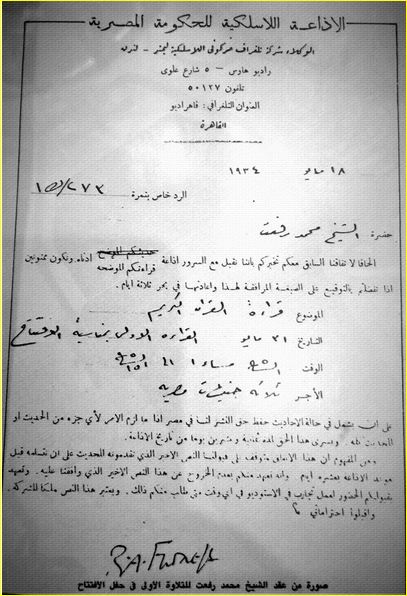 الاذاعة اللاسلكية للحكومة المصرية
الوكلاء شركة تلغراف مركونى اللاسلكية ليمتد - لندن
راديو هاوس - ٥ شارع علوى
تلفون ٥٠١٢٧
العنوان التلغرافي: قاهراديو
القاهرة
١٨ مايو ١٩٣٤
الرد خاص بنمرة ٢٧٣
حضرة الشيخ محمد رفعت
الحاقا لاتفاقنا السابق معكم نخبركم باننا نقبل مع السرور اذاعة قراءتكم الموضحة ادناه ونكون ممنونين
اذا تفضلتم بالتوقيع على الصيغة المرافقة لهذا واعادتها في بحر ثلاثة ايام.
الموضوع قراءة القرآن الكريم
التاريخ ٣١ مايو القراءة الاولى بمناسبة الافتتاح
الوقت مساء الى
الأجر ثلاثة جنيهات مصرية
على ان يشمل في حالة الاحاديث حفظ حق النشر لنا في مصر اذا ما لزم الامر لأي جزء من الحديث او
للحديث كله. ويسرى هذا الحق لمدة ثمانية وعشرين يوما من تاريخ الاذاعة.
ومن المفهوم ان هذا الاتفاق متوقف على قبولنا النص الاخير الذى تقدمونه للحديث على ان نتسلمه قبل
موعد الاذاعة بعشرة ايام وانه تعهد منكم بعدم الخروج عن هذا النص الاخير الذي وافقنا عليه. وتعهد
بقبولكم الحضور لعمل تجارب في الاستوديو في اي وقت متى طلب منكم ذلك. ويعتبر هذا النص ملكا للشركة.
واقبلوا احتراماتي
صورة من عقد الشيخ محمد رفعت للتلاوة الاولى فى حفل الافتتاح